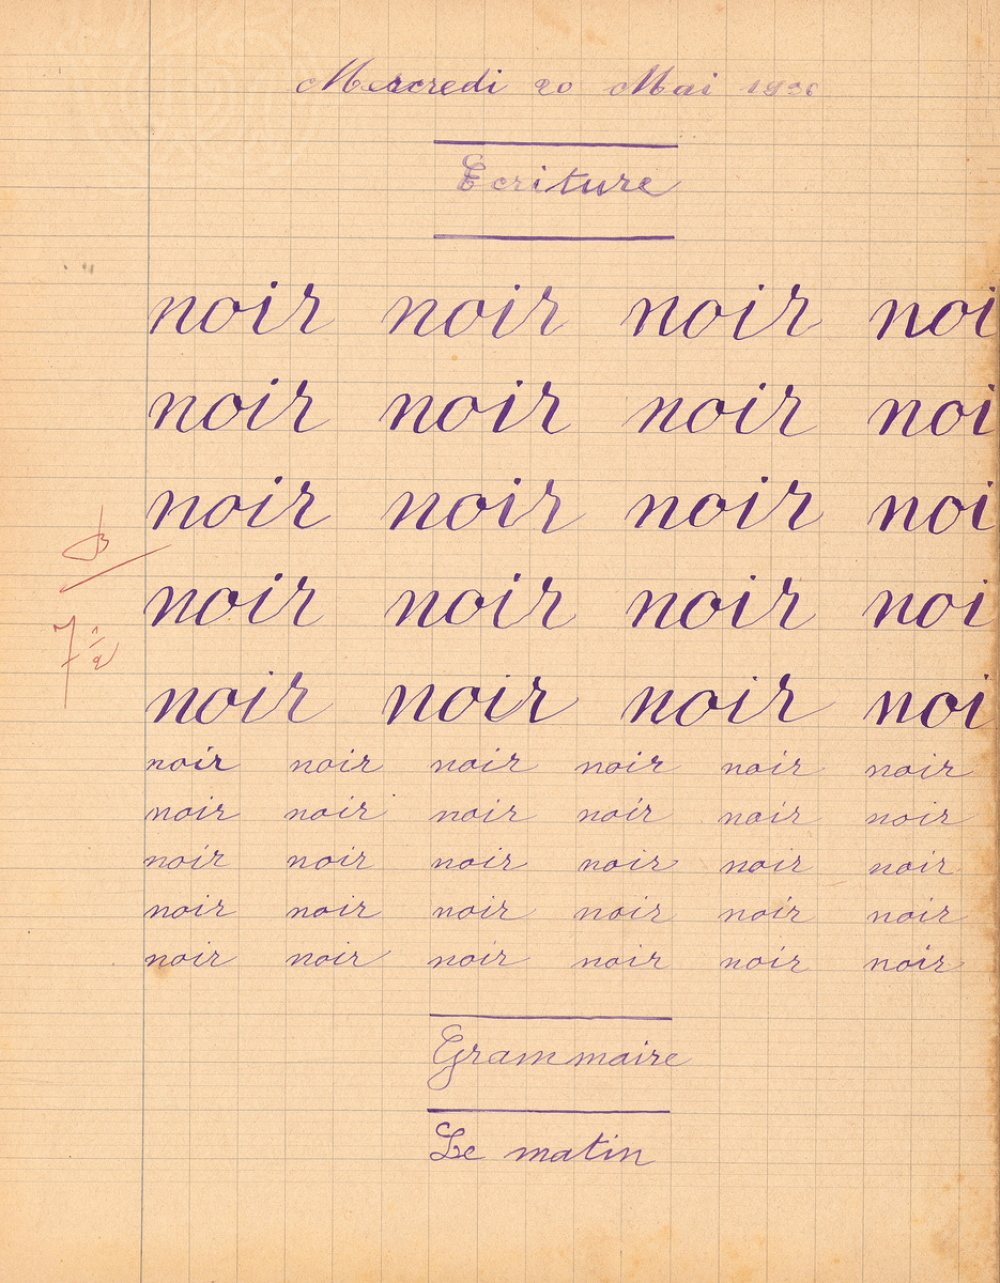 Mercredi 20 Mai 1936
Ecriture
noir noir noir noi
noir noir noir noi
noir noir noir noi
noir noir noir noi
noir noir noir noi
noir noir noir noir noir noir
noir noir noir noir noir noir
noir noir noir noir noir noir
noir noir noir noir noir noir
noir noir noir noir noir noir
7 1/2
Grammaire
Le matin